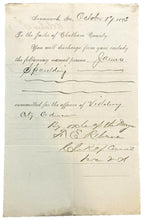 Savannah, Ga., October 17, 1893
To the Jailer of Chatham County.
You will discharge from your custody
the following named person James
Spaulding
committed for the offence of Violating
City Ordinance
By order of the Mayor
Clerk of Council